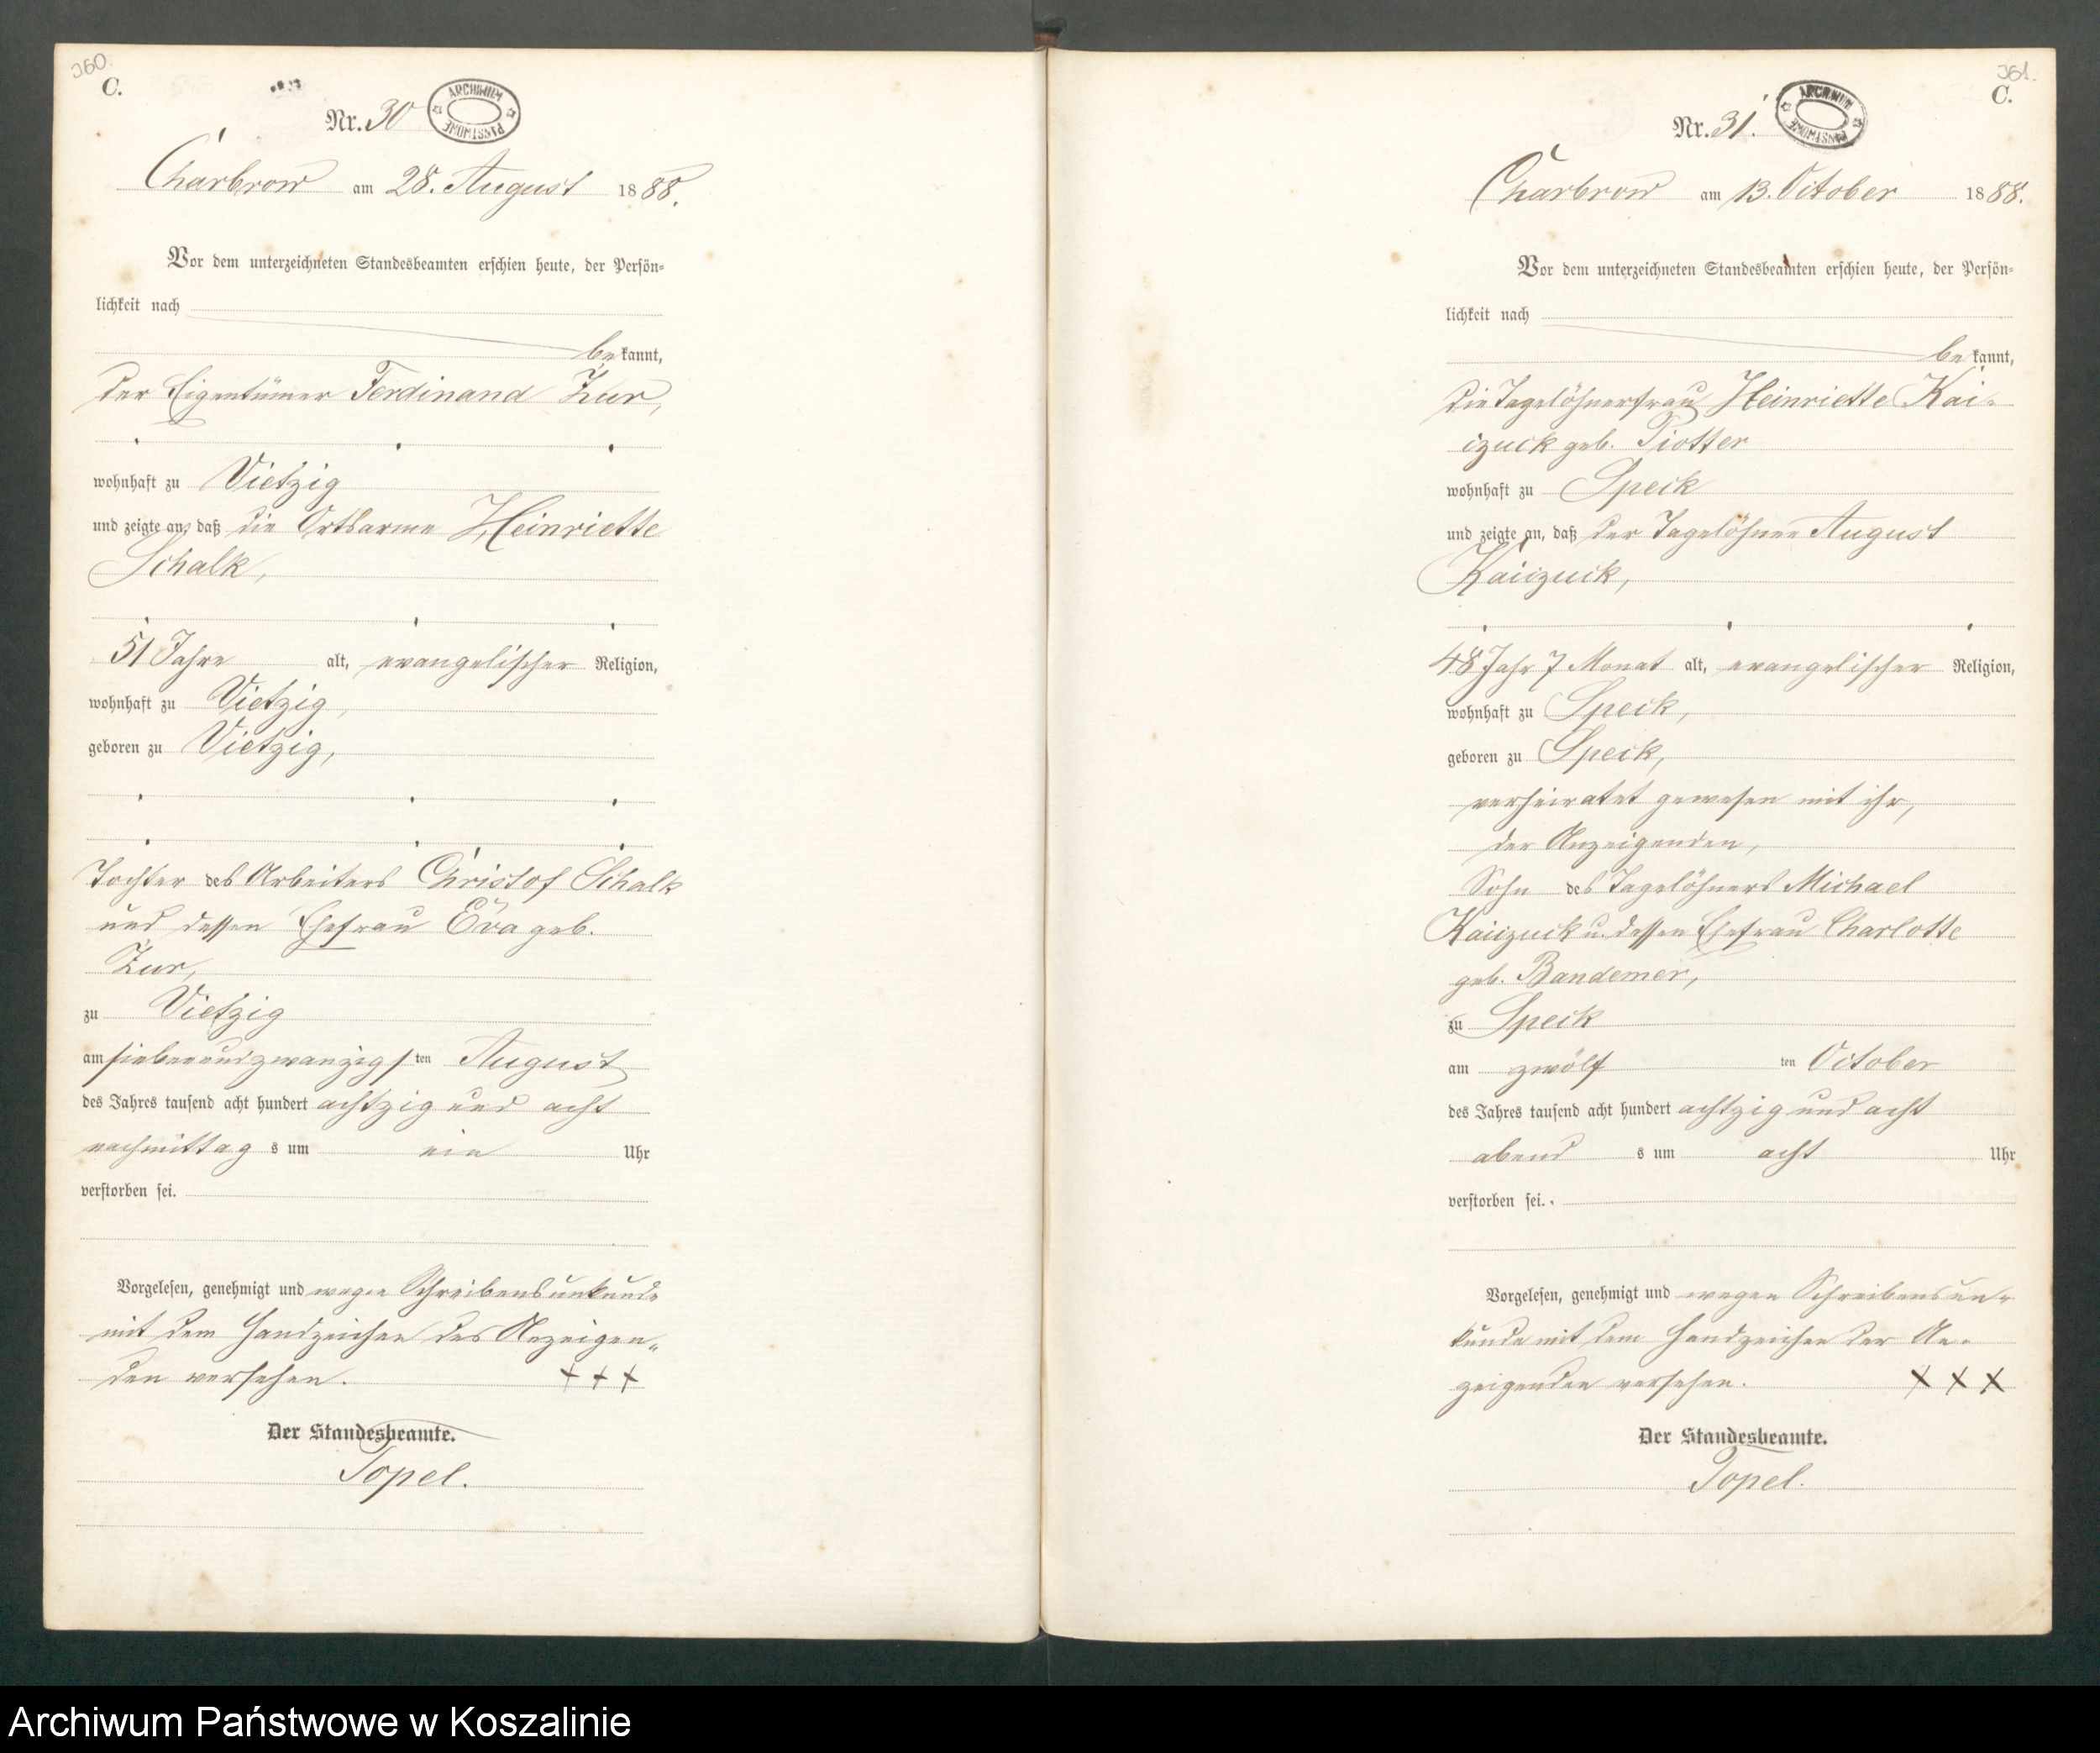 360.
C.
Nr. 30
ARCHIWUM PAŃSTWOWE
Charbrow am 28. August 1888.
Vor dem unterzeichneten Standesbeamten erschien heute, der Persön-
lichkeit nach
bekannt,
der Eigentümer Ferdinand Zur,
wohnhaft zu Vietzig
und zeigte an, daß die Ortsarme Heinriette
Schalk,
51 Jahre alt, evangelischer Religion,
wohnhaft zu Vietzig,
geboren zu Vietzig,
Tochter des Arbeiters Christof Schalk
und dessen Ehefrau Eva geb.
Zur,
zu Vietzig
am siebenundzwanzigsten August
des Jahres tausend acht hundert achtzig und acht
nachmittags um ein Uhr
verstorben sei.
Vorgelesen, genehmigt und wegen Schreibensunkunde
mit dem Handzeichen des Anzeigen-
den versehen. + + +
Der Standesbeamte.
Topel.
361.
C.
Nr. 31.
ARCHIWUM PAŃSTWOWE
Charbrow am 13. October 1888.
Vor dem unterzeichneten Standesbeamten erschien heute, der Persön-
lichkeit nach
bekannt,
die Tagelöhnerfrau Heinriette Kai-
izuck geb. Piotter
wohnhaft zu Speck
und zeigte an, daß der Tagelöhner August
Kaiizuck,
48 Jahr 7 Monat alt, evangelischer Religion,
wohnhaft zu Speck,
geboren zu Speck,
verheiratet gewesen mit ihr,
der Anzeigenden,
Sohn des Tagelöhners Michael
Kaiizuck u. dessen Ehefrau Charlotte
geb. Bandemer,
zu Speck
am zwölften October
des Jahres tausend acht hundert achtzig und acht
abends um acht Uhr
verstorben sei.
Vorgelesen, genehmigt und wegen Schreibensun-
kunde mit dem Handzeichen der An-
zeigenden versehen. X X X
Der Standesbeamte.
Topel.
Archiwum Państwowe w Koszalinie